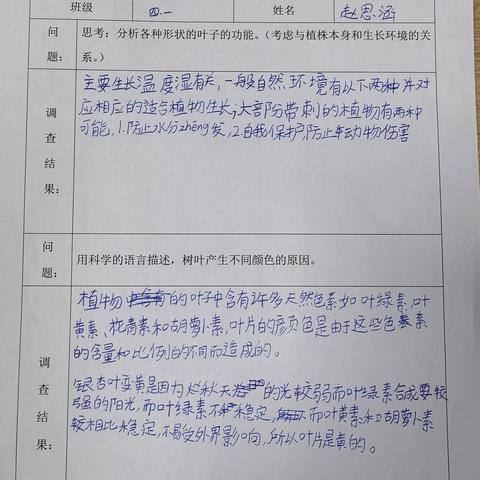 班级 四.一 姓名 赵思涵
问题：
思考：分析各种形状的叶子的功能。（考虑与植株本身和生长环境的关
系。）
调查结果：
主要生长温度湿有关，一般自然环境有以下两种并对
应相应的适合植物生长；大部分带刺的植物有两种
可能，1.防止水分zhēng发，2.自我保护，防止动物伤害
问题：
用科学的语言描述，树叶产生不同颜色的原因。
调查结果：
植物的叶子中含有许多天然色素如叶绿素，叶
黄素、花青素和胡萝卜素，叶片的颜色是由于这些色素
的含量和比例的不同而造成的。
银杏叶变黄是因为秋天的光较弱而叶绿素合成要较
强的阳光，而叶绿素不稳定，而叶黄素和胡萝卜素
较相比稳定，不易受外界影响，所以叶片是黄的。